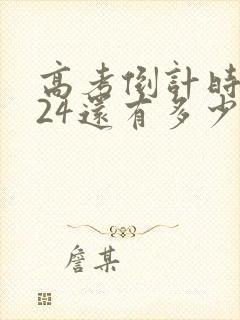 高考倒計時
24還有多少
詹某